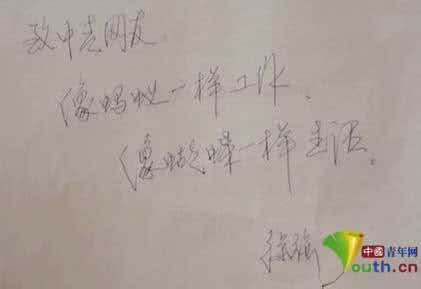 致中青网友
像蚂蚁一样工作、
像蝴蝶一样生活。
中國青年网
Youth.cn